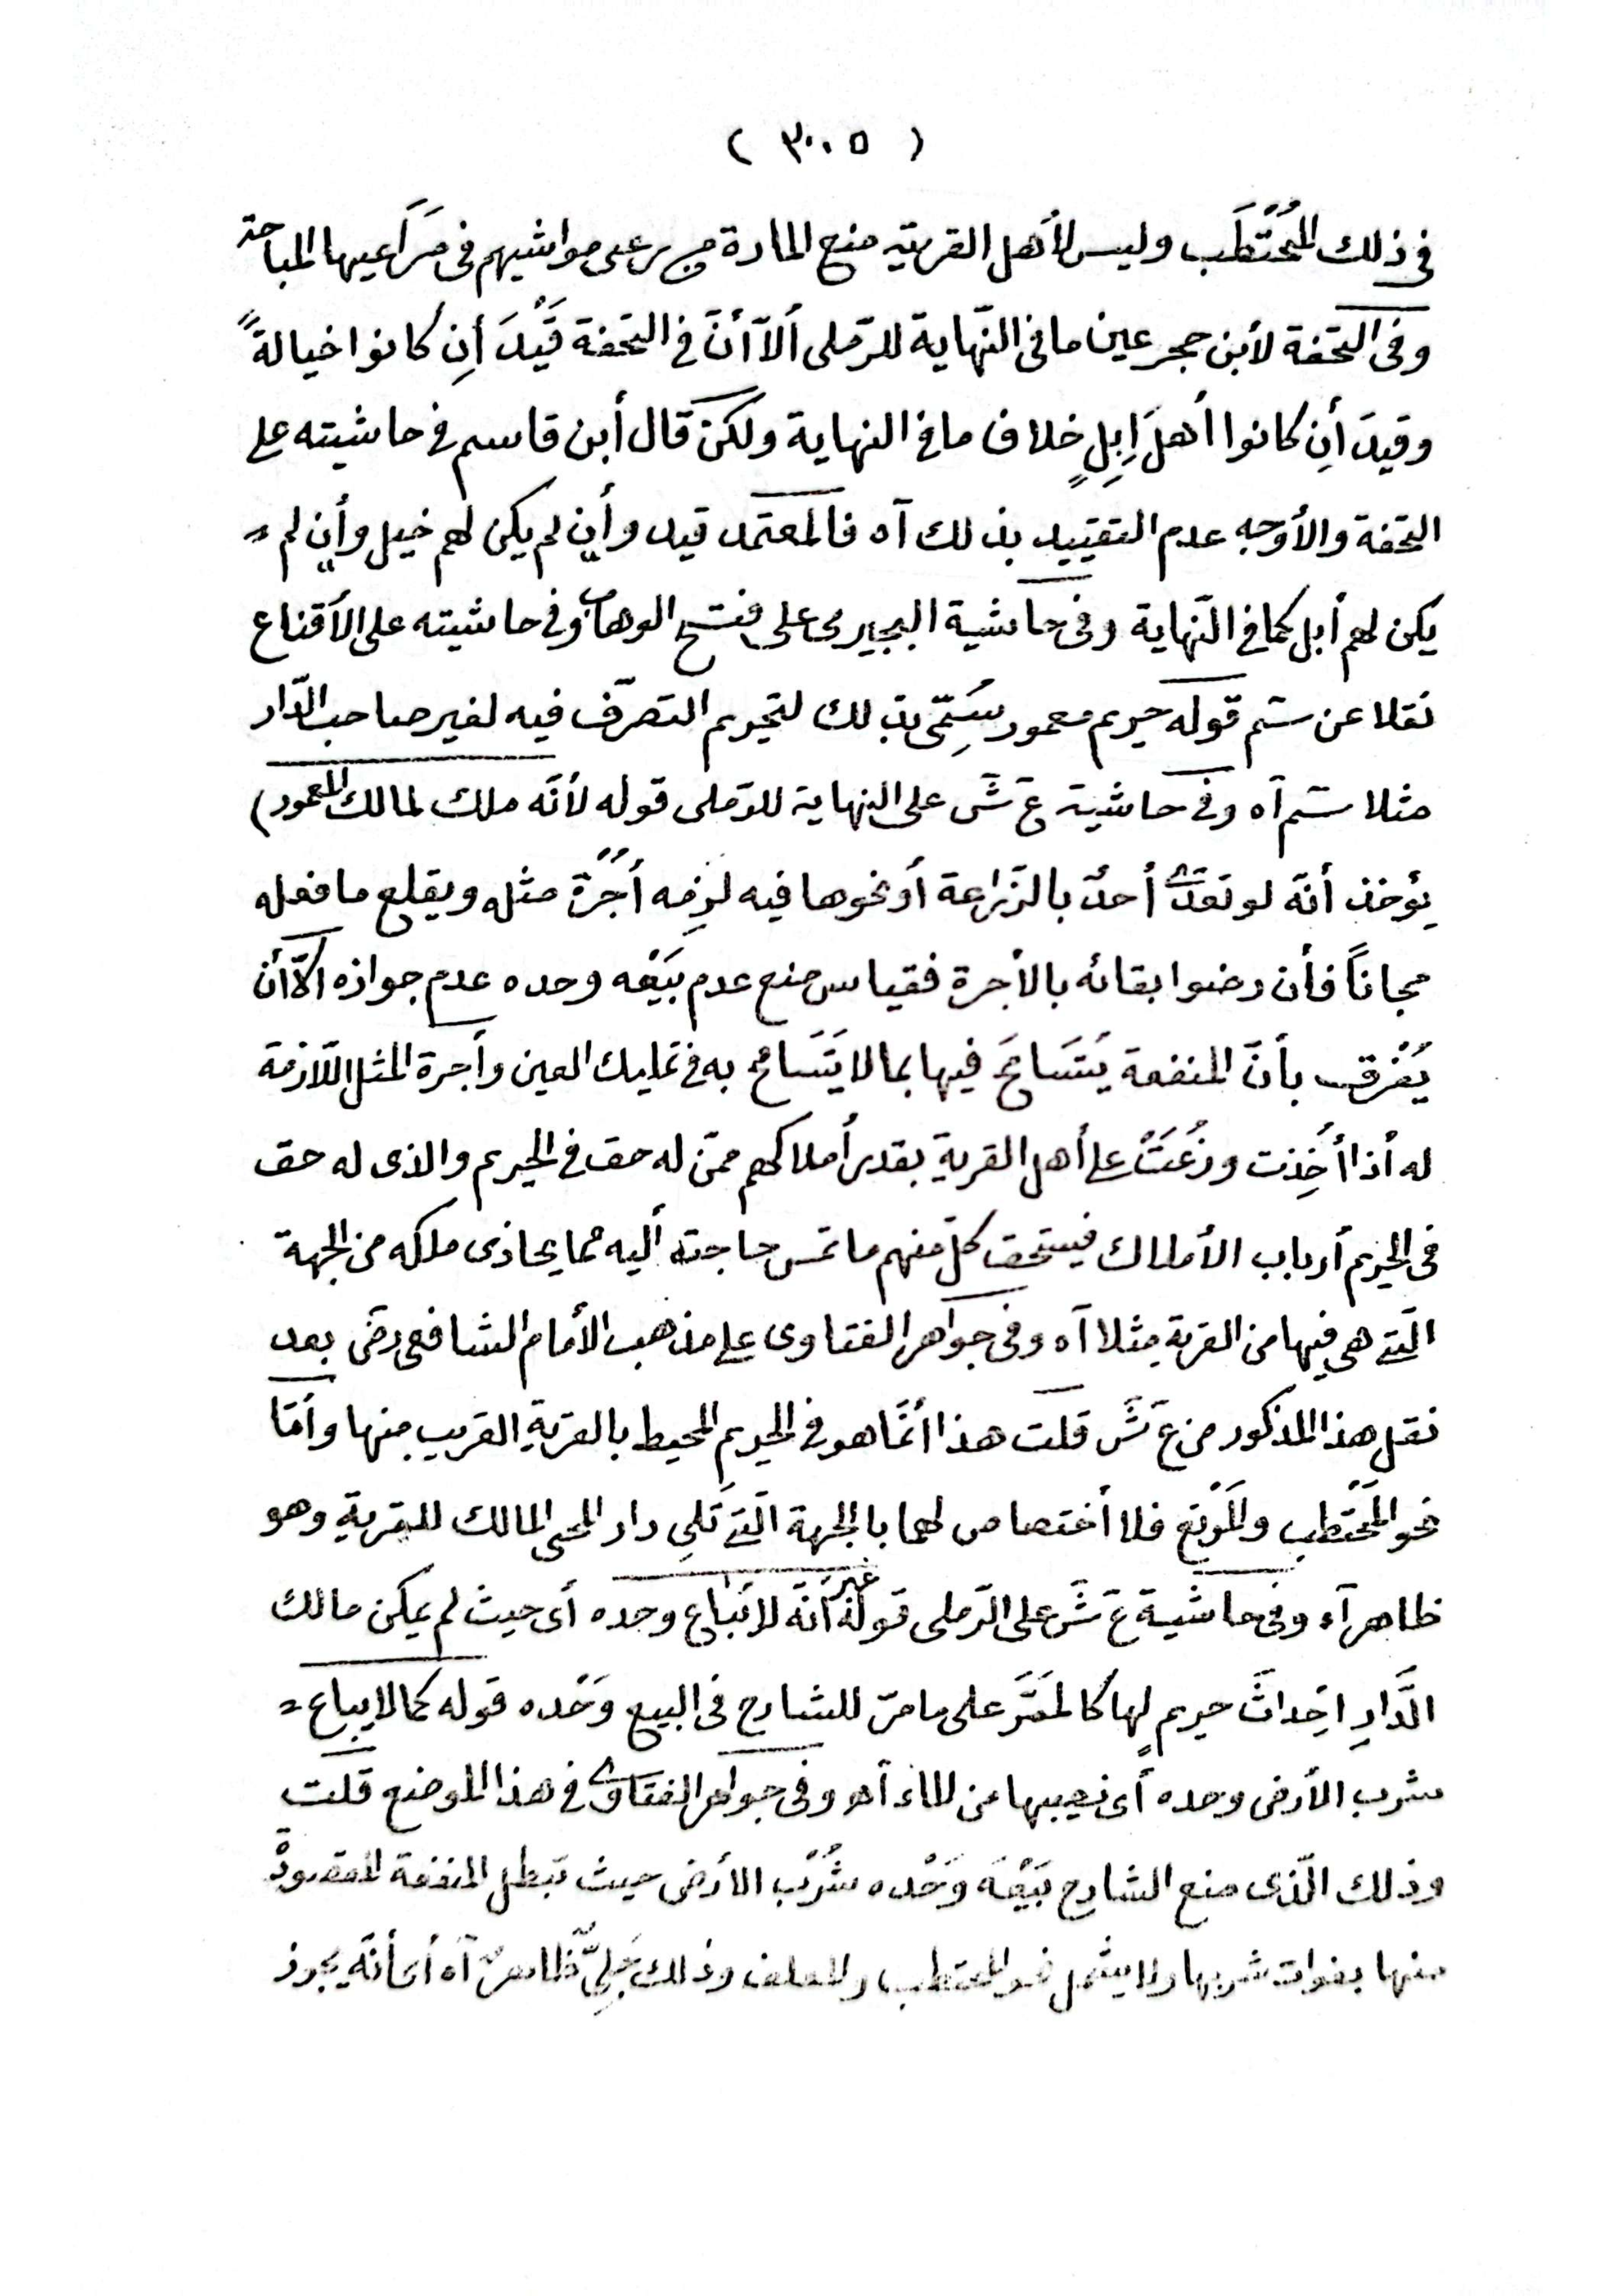 ( ٣٠٠٥ )
فى ذلك المُحْتَطَب وليس لأهل القرية منع المارة من رعى مواشيهم فى مَرَاعيها المباحة
وفى التحفة لأبن حجر عين ما فى النّهاية للرّملى ألاّ أنّ فى التحفة قَيْدَ أنِ كانوا خيالةً
وقيدَ أنِ كانوا أهلَ اِبِلٍ خلاف ما فى النهاية ولكن قال أبن قاسم فى حاشيته على
التحفة والأوجه عدم التقييد بذلك آه فالمعتمد قيد وأن لم يكن لهم خيل وأن لم =
يكن لهم أبل كما فى النّهاية وفى حاشية البجيرمى على فتح الوهاب وفى حاشيته على الأقناع
نقلا عن سَم قوله حريم معمور سُمِّىَ بذلك لتحريم التصرّف فيه لغير صاحب الدّار
مثلا سَم آه وفى حاشية عَ شَ على النهاية للرّملى قوله لأنّه ملك لمالك المعمور)
يؤخذ أنّه لو تعدّى أحدٌ بالزّراعة أو نحوها فيه لزمه أُجْرَةُ مثله ويقلع ما فعله
مجاناً فأن رضوا بقائه بالأجرة فقياس منع عدم بَيْعِه وحده عدم جوازه الاّ أن
يُفْرق بأنّ المنفعة يَتَسَامَحُ فيها بما لا يَتَسَامح به فى تمليك العين وأجرة المثل اللّازمة
له أذا أُخِذت وزُعَتْ على أهل القرية بقدر أملاكهم ممّن له حق فى الحريم والذى له حق
فى الحريم أرباب الأملاك فيستحق كلّ منهم ما تمس حاجته أليه مما يحاذى ملكه من الجهة
الّتى هى فيها من القرية مثلا آه وفى جواهر الفتاوى على مذهب الأمام الشافعى رضَ بعد
نقل هذا المذكور من عَ شَ قلت هذا أنّما هو فى الحريم المحيط بالقرية القريب منها وأمّا
نحو المُحْتَطب والمَرْتع فلا أختصاص لهما بالجهة الّتى تَلِى دار المحيى المالك للقرية وهو
ظاهر آه وفى حاشية عَ شَ على الرّملى قوله غير أنّه لا يُبَاع وحده أى حيث لم يمكن مالك
الدَّارِ اِحِداثَ حريم لها كالمَمَرَّ على ما مرّ للشارح فى البيع وَحْده قوله كما لا يباع =
شرب الأرض وحده أى نصيبها من الماء آهـ وفى جواهر الفتاوى فى هذا الموضع قلت
وذلك الّذى منع الشارح بَيْعَه وَحْده شُرْب الأرض حيث تبطل المنفعة المقصودة
منها بفوات شربها ولا يشمل نحو المحتطب والمعلف وذلك جَلِىّ ظاهرٌ آه أى أنّه يجوز